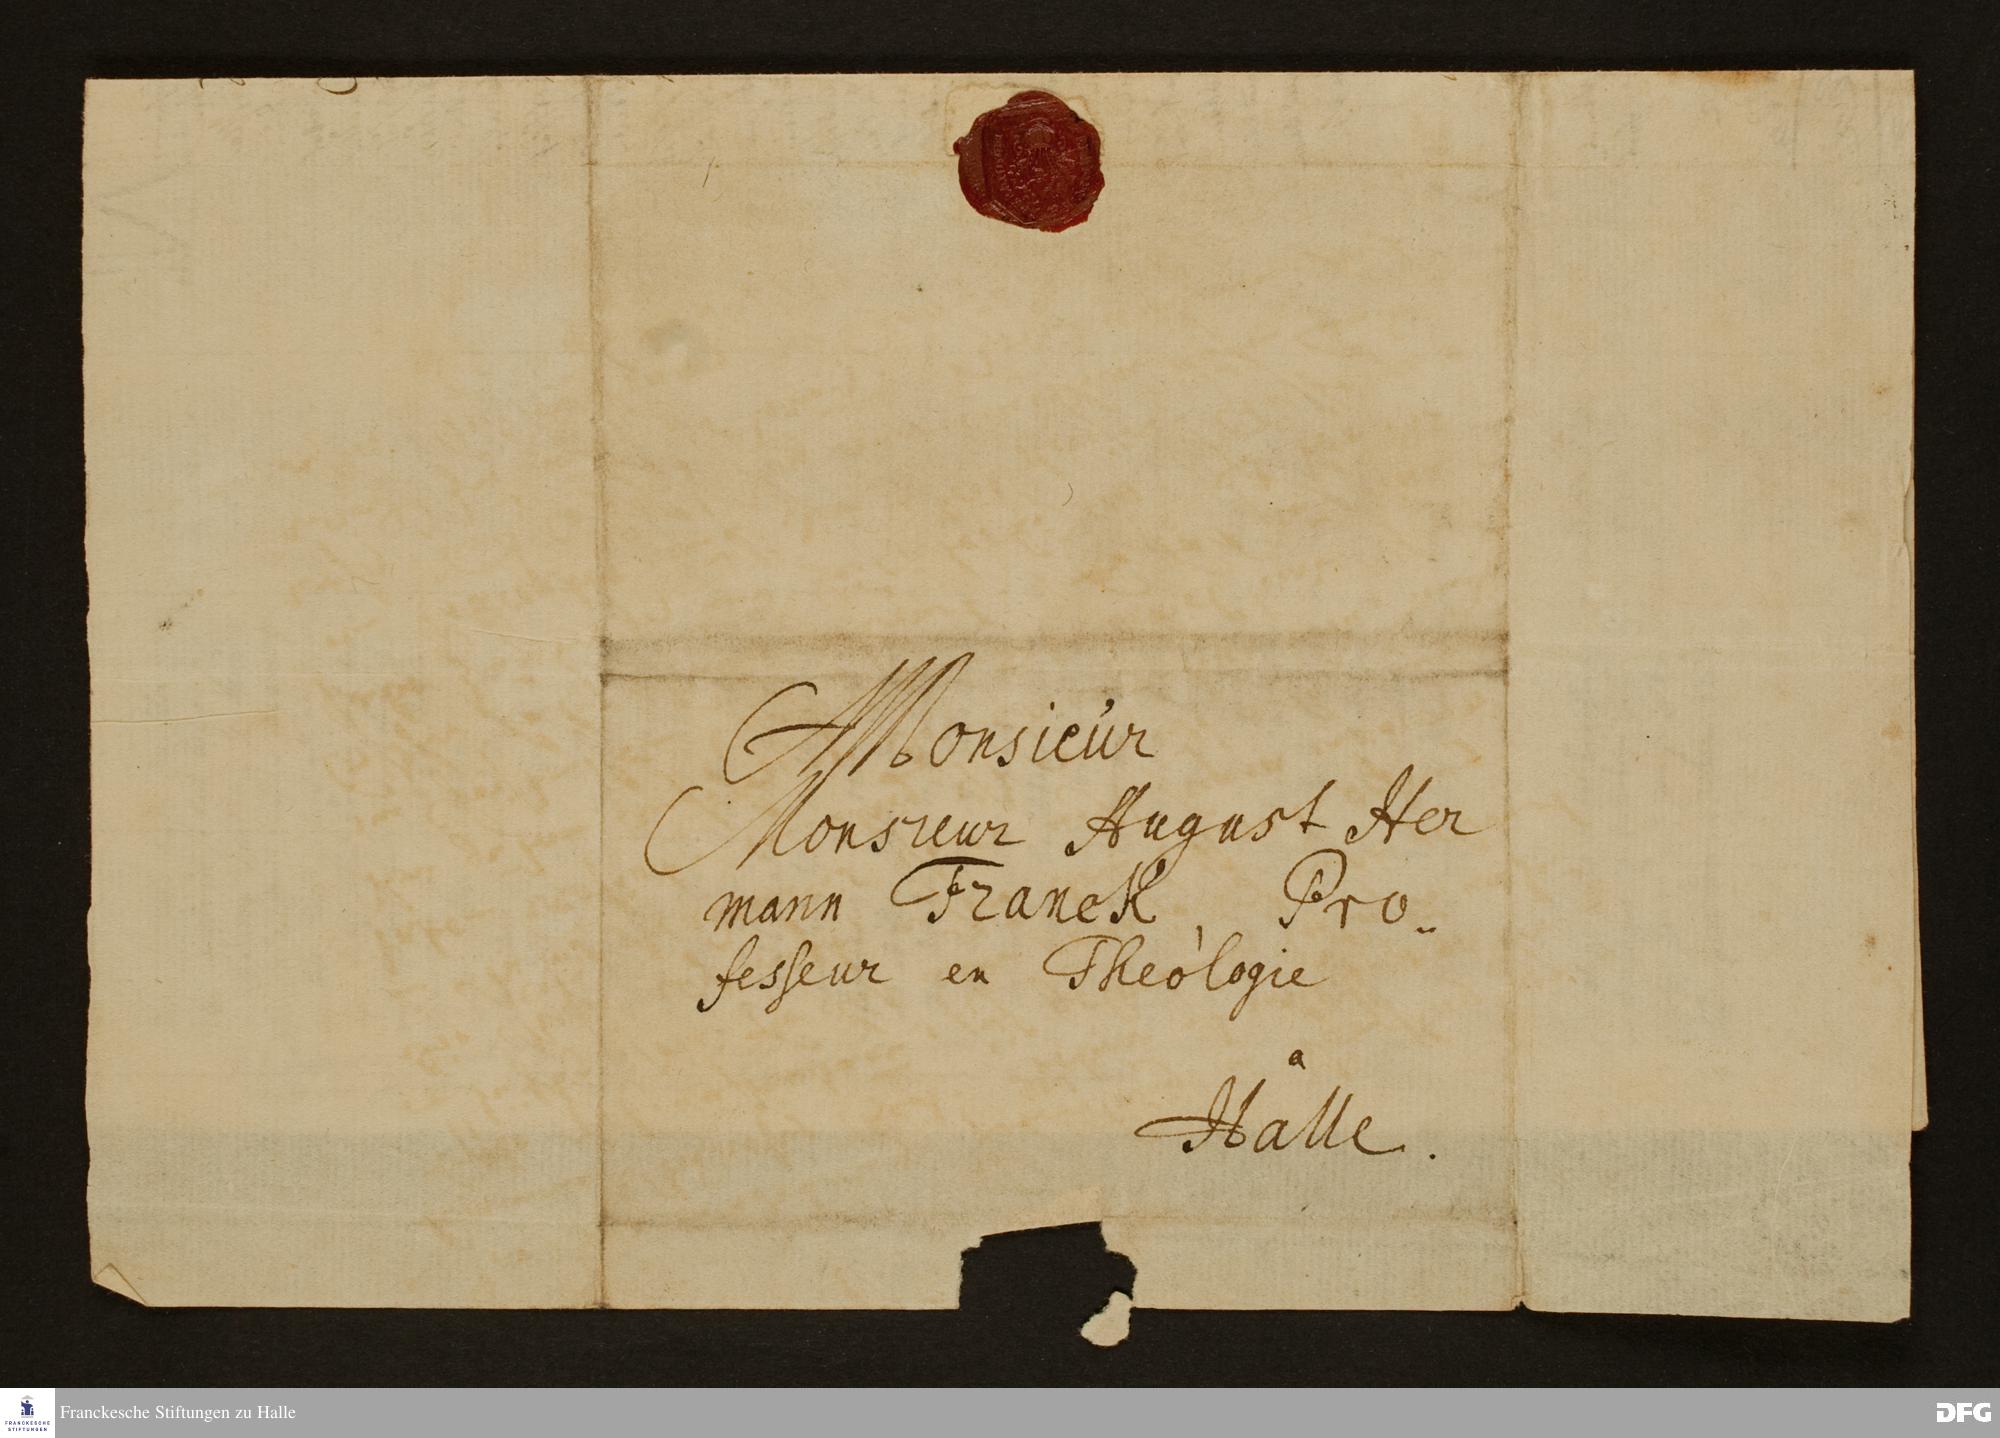 Monsieur
Monsieur August Her
mann Franck, Pro„
fesseur en Theòlogie
a
Halle.
FRANCKESCHE
STIFTUNGEN
Franckesche Stiftungen zu Halle
DFG